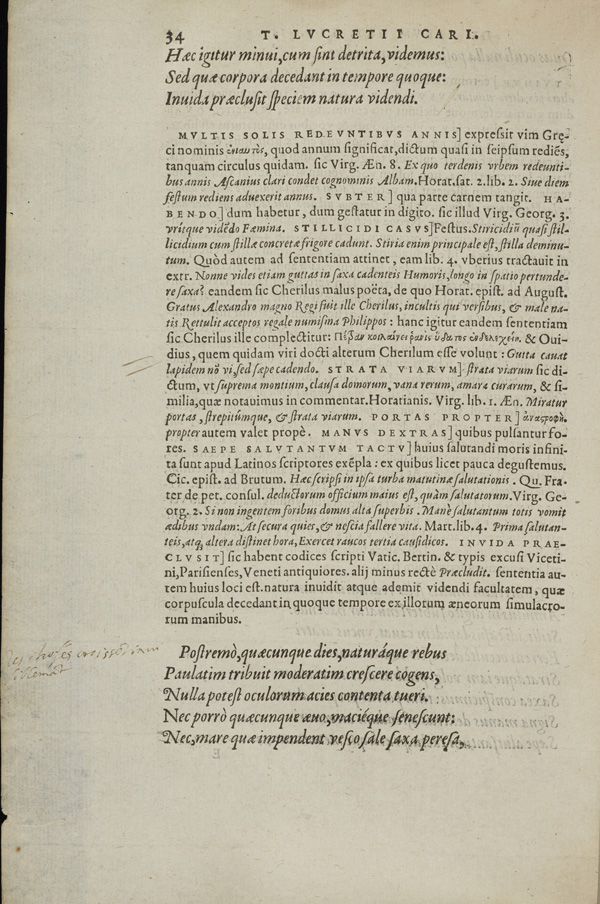 34 T. LVCRETII CARI.
Hæc igitur minui, cum sint detrita, videmus:
Sed quæ corpora decedant in tempore quoque:
Inuida præclusit speciem natura videndi.
MVLTIS SOLIS REDEVNTIBVS ANNIS] expressit vim Grę-
ci nominis ἐνιαυτὸς, quod annum significat, dictum quasi in seipsum rediẽs,
tanquam circulus quidam. sic Virg. Æn. 8. Ex quo terdenis vrbem redeunti-
bus annis Ascanius clari condet cognominis Albam. Horat. sat. 2. lib. 2. Siue diem
festum rediens aduexerit annus. SVBTER] qua parte carnem tangit. HA-
BENDO] dum habetur, dum gestatur in digito. sic illud Virg. Georg. 3.
vtrique vidẽdo Fœmina. STILLICIDI CASVS] Festus. Stiricidiũ quasi stil-
licidium cum stillæ concretæ frigore cadunt. Stiria enim principale est, stilla deminu-
tum. Quòd autem ad sententiam attinet, eam lib. 4. vberius tractauit in
extr. Nonne vides etiam guttas in saxa cadenteis Humoris, longo in spatio pertunde-
re saxa? eandem sic Cherilus malus poëta, de quo Horat. epist. ad August.
Gratus Alexandro magno Regi fuit ille Cherilus, incultis qui versibus, & male na-
tis Rettulit acceptos regale numisma Philippos: hanc igitur eandem sententiam
sic Cherilus ille complectitur: Πέτραν κοιλαίνει ῥανὶς ὕδατος ἐνδελεχείῃ. & Oui-
dius, quem quidam viri docti alterum Cherilum esse volunt: Gutta cauat
lapidem nõ vi, sed sæpe cadendo. STRATA VIARVM] strata viarum sic di-
ctum, vt suprema montium, clausa domorum, vana rerum, amara curarum, & si-
milia, quæ notauimus in commentar. Horatianis. Virg. lib. 1. Æn. Miratur
portas, strepitúmque, & strata viarum. PORTAS PROPTER] ἀναστροφή.
propter autem valet propè. MANVS DEXTRAS] quibus pulsantur fo-
res. SAEPE SALVTANTVM TACTV] huius salutandi moris infini-
ta sunt apud Latinos scriptores exẽpla: ex quibus licet pauca degustemus.
Cic. epist. ad Brutum. Hæc scripsi in ipsa turba matutinæ salutationis. Qu. Fra-
ter de pet. consul. deductorum officium maius est, quàm salutatorum. Virg. Ge-
org. 2. Si non ingentem foribus domus alta superbis. Manè salutantum totis vomit
ædibus vndam: At secura quies, & nescia fallere vita. Mart. lib. 4. Prima salutan-
teis, atq, altera distinet hora, Exercet raucos tertia causidicos. INVIDA PRAE-
CLVSIT] sic habent codices scripti Vatic. Bertin. & typis excusi Viceti-
ni, Parisienses, Veneti antiquiores. alij minus rectè Præcludit. sententia au-
tem huius loci est. natura inuidit atque ademit videndi facultatem, quæ
corpuscula decedant in quoque tempore ex illorum æneorum simulacro-
rum manibus.
Postremò, quæcunque dies, naturáque rebus
Paulatim tribuit moderatim crescere cogens,
Nulla potest oculorum acies contenta tueri.
Nec porrò quæcunque æuo, maciéque senescunt:
Nec, mare quæ impendent vesco sale saxa peresa,